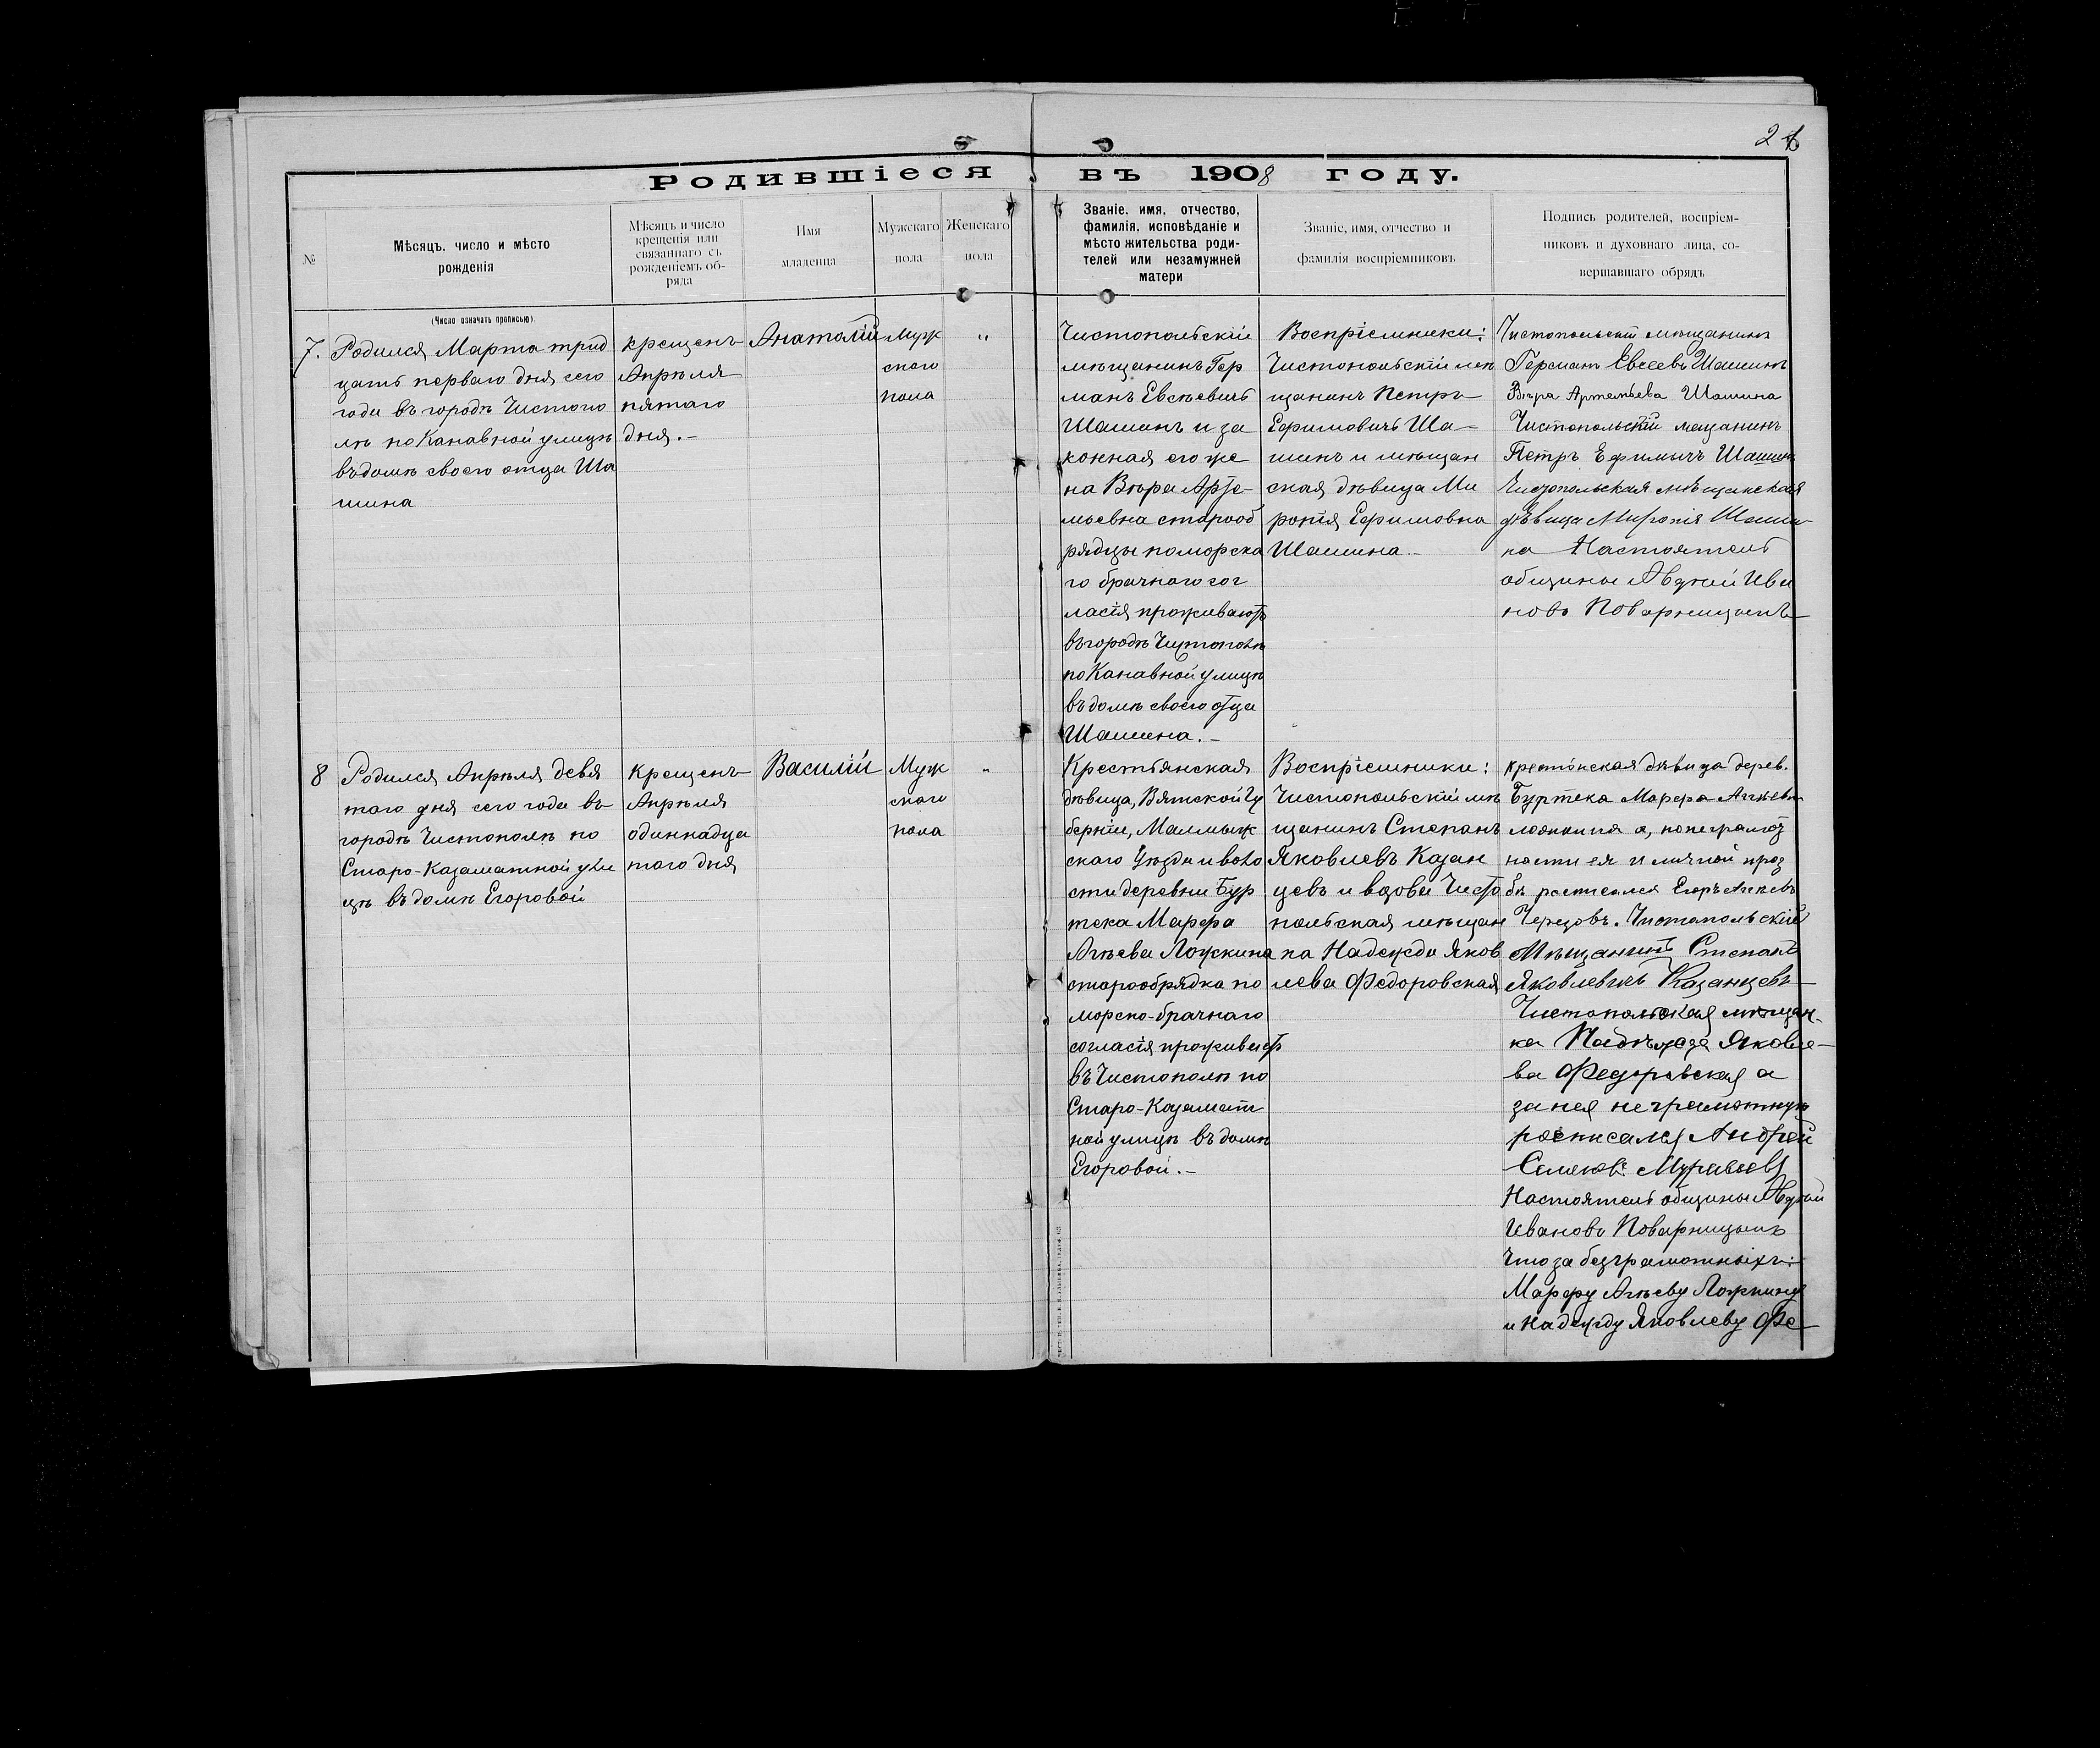 2
Родившіеся въ 1908 году.
№
Мѣсяцъ, число и мѣсто
рожденія
Мѣсяцъ и число
крещенія или
связаннаго съ
рожденіемъ об-
ряда
Имя
младенца
Мужскаго
пола
Женскаго
пола
Званіе, имя, отчество,
фамилія, исповѣданіе и
мѣсто жительства роди-
телей или незамужней
матери
Званіе, имя, отчество и
фамилія воспріемниковъ
Подпись родителей, воспріем-
никовъ и духовнаго лица, со-
вершавшаго обрядъ
(Число означать прописью).
7.
Родился Марта трид
цать перваго дня сего
года въ городѣ Чистопо
лѣ по Канавной улицѣ
въ домѣ своего отца Ша
шина
крещенъ
Апрѣля
пятаго
дня.-
Анатолій
Муж
скаго
пола
"
Чистопольскій
мѣщанинъ Гер
манъ Евсѣевичъ
Шашинъ и за
конная его же
на Вѣра Арте-
мьевна старооб
рядцы поморска
го брачнаго сог
ласія проживаютъ
въ городѣ Чистополѣ
по Канавной улицѣ
въ домѣ своего отца
Шашина.-
Воспріемники:
Чистопольскій мѣ
щанинъ Петръ
Ефимовичъ Ша-
шинъ и мѣщан
ская дѣвица Ми
ропія Ефимовна
Шашина.-
Чистопольскій мѣщанинъ
Германъ Евсеевъ Шашинъ
Вѣра Артемьева Шашина
Чистопольскій мещанинъ
Петръ Ефимычъ Шашинъ
Чистопольская мѣщанская
дѣвица Миропія Шаши-
на Настоятель
общины Авдѣй Ива
новъ Поварницынъ
8
Родился Апрѣля девя
таго дня сего года въ
городѣ Чистополѣ по
Старо-Казаматной ули
цѣ въ домѣ Егоровой
Крещенъ
Апрѣля
одиннадца
таго дня
Василій
Муж
скаго
пола
"
Крестьянская
дѣвица, Вятской Гу
берніи, Малмыж
скаго Уѣзда и воло
сти деревни Бур
тека Марфа
Агѣева Ложкина
старообрядка по
морско-брачнаго
согласія проживаетъ
въ Чистополѣ по
Старо-Казамат
ной улицѣ въ домѣ
Егоровой.-
Воспріемники:
Чистопольскій мѣ
щанинъ Степанъ
Яковлевъ Казан
цевъ и вдова Чисто
польская мѣщан
ка Надежда Яков
лева Федоровская
крестьянская дѣвица дерев.
Буртека Марфа Агѣева
Ложкина а, по неграмот
ности ея и личной прозь
бѣ росписался Егоръ
Чистопольскій
Мѣщанинъ Степанъ
Яковлевичъ Казанцевъ
Чистопольская мѣщан-
ка Надѣжда Яковле-
ва Федоровская а
за нея неграмотную
росписался Андрей
Семеновъ Муравьевъ
Настоятель общины Авдѣй
Ивановъ Поварницынъ
Что за безграмотныхъ:
Марфу Агѣеву Ложкину
и Надежду Яковлеву Фе-